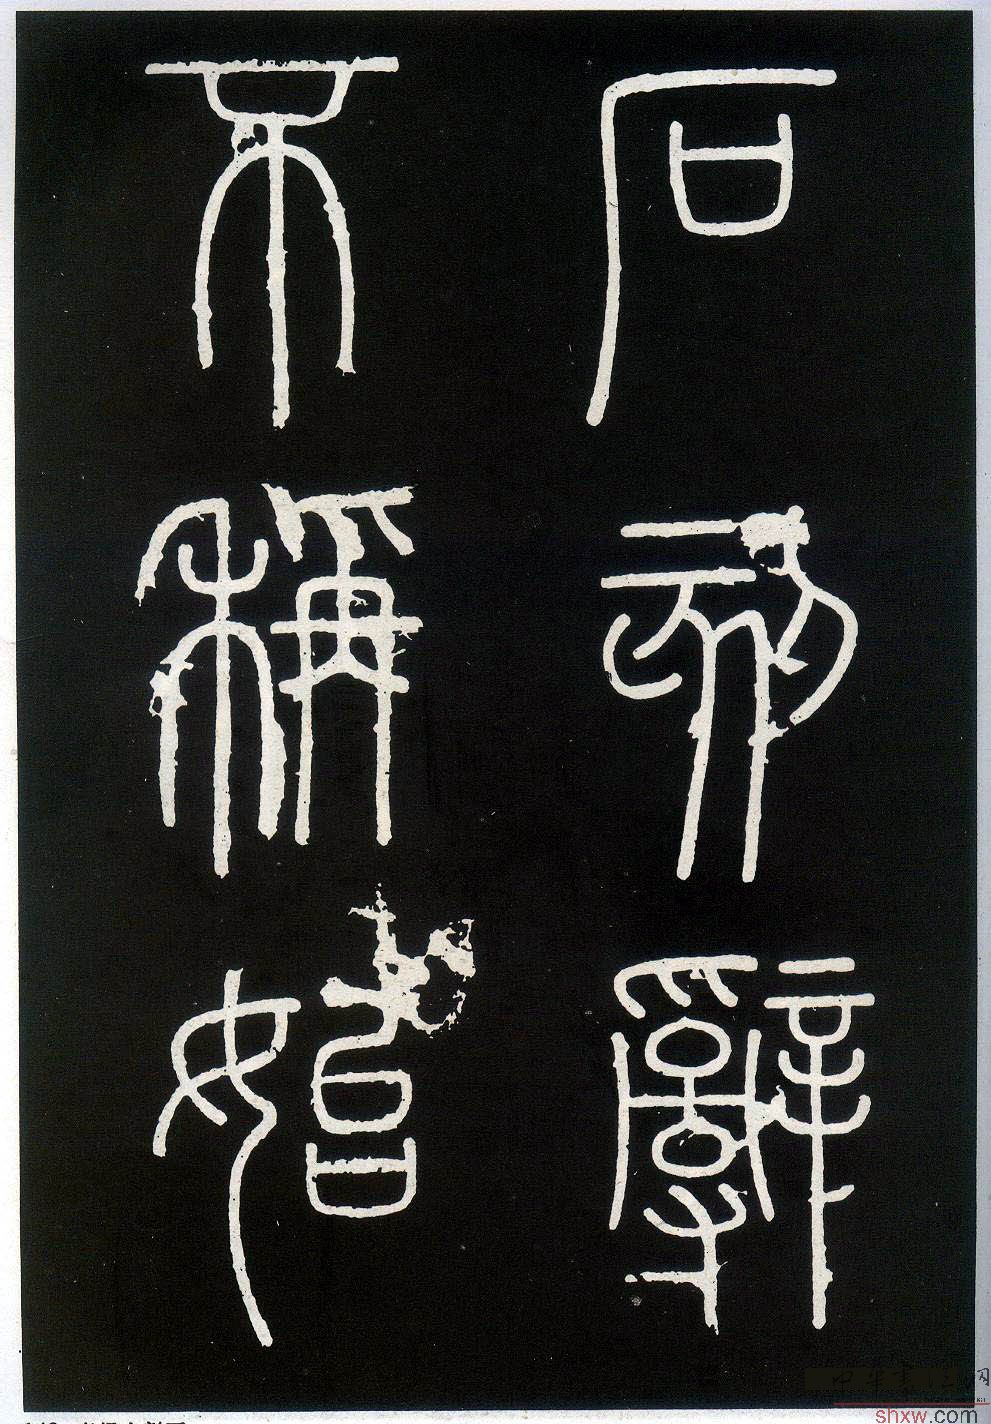 石刻辭
不稱始
shxw.com